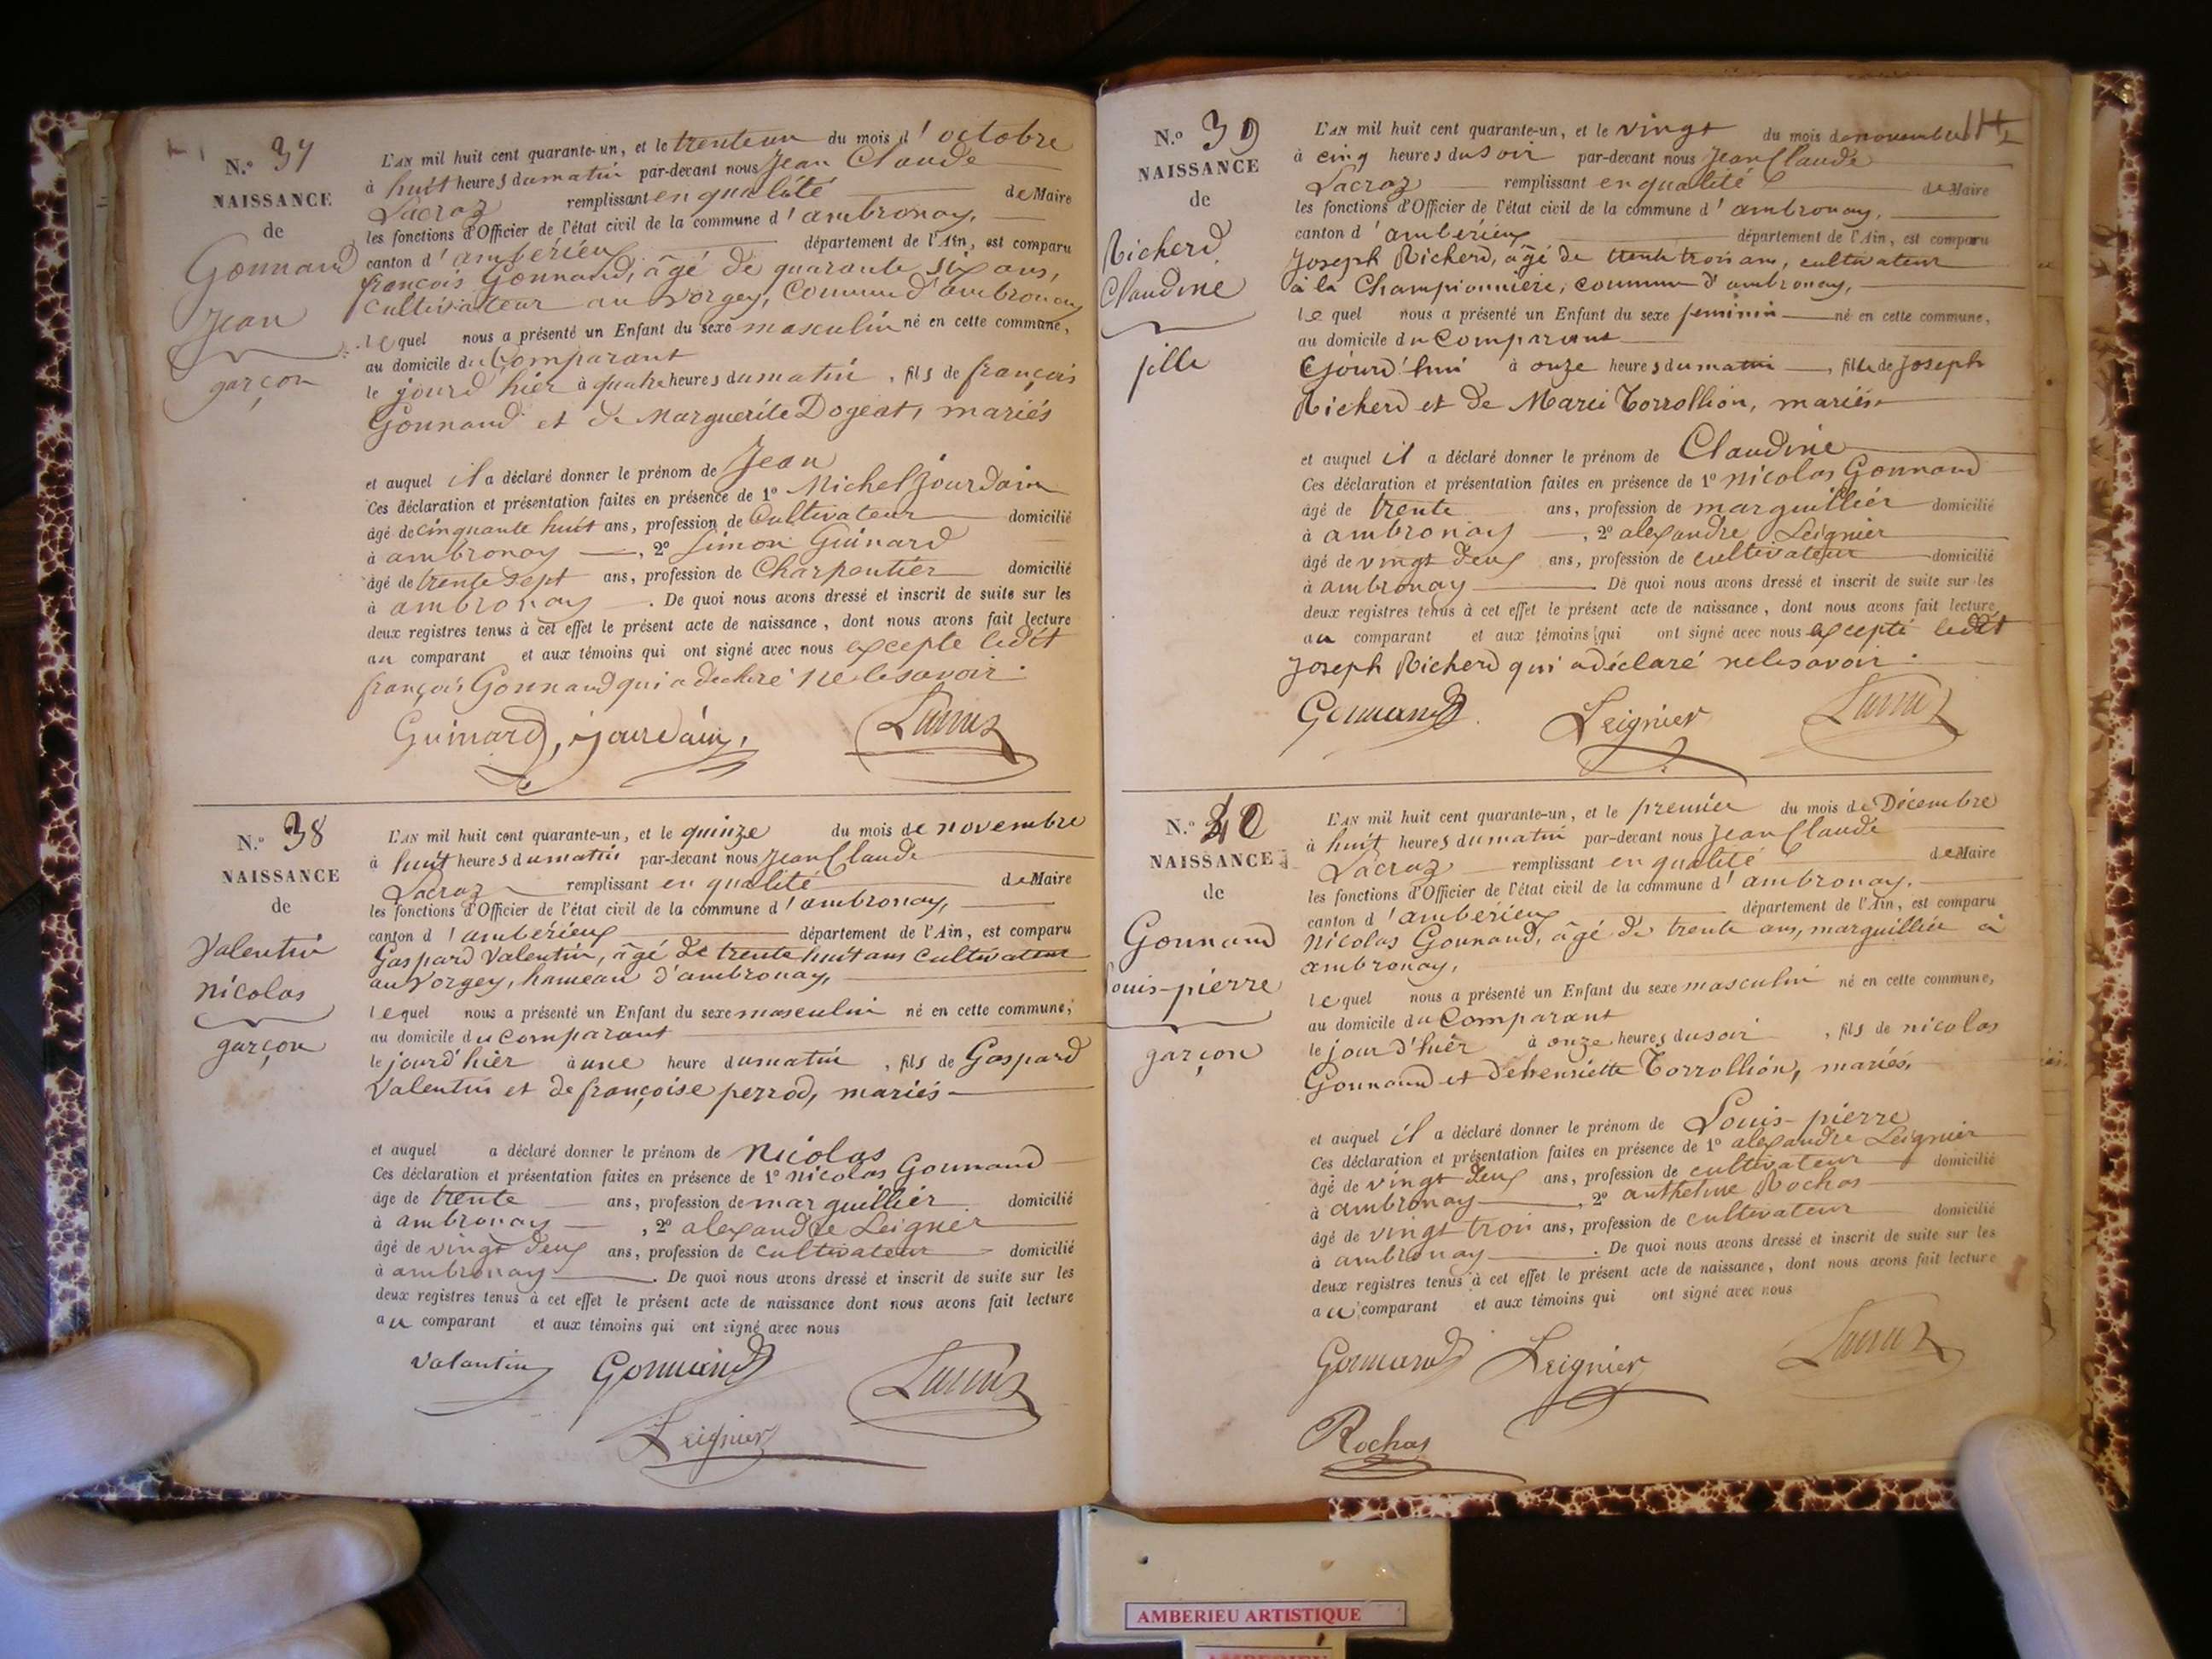 N.o 37
NAISSANCE
de
Gonnand
Jean
garçon
L'AN mil huit cent quarante-un, et le trente un du mois d'octobre
à huit heures du matin par-devant nous Jean Claude
Lacroz remplissant en qualité de Maire
les fonctions d'Officier de l'état civil de la commune d'ambronay,
canton d'ambérieux département de l'Ain, est comparu
françois Gonnand, âgé de quarante six ans,
cultivateur au Vorgey, Commune d'ambronay
lequel nous a présenté un Enfant du sexe masculin né en cette commune,
au domicile du Comparant
le jourd'hier à quatre heures du matin, fils de françois
Gonnand et de Marguerite Dogeat, mariés
et auquel il a déclaré donner le prénom de Jean
Ces déclaration et présentation faites en présence de 1o Michel Jourdain
âgé de cinquante huit ans, profession de Cultivateur domicilié
à ambronay, 2o Simon Guinard
âgé de trente sept ans, profession de Charpentier domicilié
à ambronay. De quoi nous avons dressé et inscrit de suite sur les
deux registres tenus à cet effet le présent acte de naissance, dont nous avons fait lecture
au comparant et aux témoins qui ont signé avec nous excepte ledit
françois Gonnand qui a declaré ne le savoir.
Guinard, jourdain, Lacroz
N.o 38
NAISSANCE
de
Valentin
Nicolas
garçon
L'AN mil huit cent quarante-un, et le quinze du mois de novembre
à huit heures du matin par-devant nous Jean Claude
Lacroz remplissant en qualité de Maire
les fonctions d'Officier de l'état civil de la commune d'ambronay,
canton d'ambérieux département de l'Ain, est comparu
Gaspard Valentin, âgé de trente huit ans cultivateur
au Vorgey, hameau d'ambronay,
lequel nous a présenté un Enfant du sexe masculin né en cette commune,
au domicile du comparant
le jourd'hier à une heure du matin, fils de Gaspard
Valentin et de françoise perrod, mariés
et auquel a déclaré donner le prénom de Nicolas
Ces déclaration et présentation faites en présence de 1o Nicolas Gonnand
âge de trente ans, profession de marguillier domicilié
à ambronay, 2o alexandre Leignier
âgé de vingt deux ans, profession de cultivateur domicilié
à ambronay. De quoi nous avons dressé et inscrit de suite sur les
deux registres tenus à cet effet le présent acte de naissance dont nous avons fait lecture
au comparant et aux témoins qui ont signé avec nous
Valantin Gonnand Lacroz
Leignier
N.o 39
NAISSANCE
de
Richerd
Claudine
fille
L'AN mil huit cent quarante-un, et le vingt du mois de novembre
à cinq heures du soir par-devant nous Jean Claude
Lacroz remplissant en qualité de Maire
les fonctions d'Officier de l'état civil de la commune d'ambronay,
canton d'ambérieux département de l'Ain, est comparu
Joseph Richerd, âgé de trente trois ans, cultivateur
à la Championniere, commune d'ambronay,
lequel nous a présenté un Enfant du sexe feminin né en cette commune,
au domicile du Comparant
Cejourd'hui à onze heures du matin, fille de Joseph
Richerd et de Marie Torrollion, mariés
et auquel il a déclaré donner le prénom de Claudine
Ces déclaration et présentation faites en présence de 1o Nicolas Gonnand
âgé de trente ans, profession de marguillier domicilié
à ambronay, 2o alexandre Leignier
âgé de vingt deux ans, profession de cultivateur domicilié
à ambronay De quoi nous avons dressé et inscrit de suite sur les
deux registres tenus à cet effet le présent acte de naissance, dont nous avons fait lecture
au comparant et aux témoins qui ont signé avec nous excepté ledit
Joseph Richerd qui a déclaré ne le savoir.
Gonnand Leignier Lacroz
N.o 40
NAISSANCE
de
Gonnand
Louis-pierre
garçon
L'AN mil huit cent quarante-un, et le premier du mois de Décembre
à huit heures du matin par-devant nous Jean Claude
Lacroz remplissant en qualité de Maire
les fonctions d'Officier de l'état civil de la commune d'ambronay.
canton d'ambérieux département de l'Ain, est comparu
Nicolas Gonnand, âgé de trente ans, marguillier à
ambronay,
lequel nous a présenté un Enfant du sexe masculin né en cette commune,
au domicile du Comparant
le jour d'hier à onze heures du soir, fils de nicolas
Gonnand et de henriette Torrollion, mariés,
et auquel il a déclaré donner le prénom de Louis-pierre
Ces déclaration et présentation faites en présence de 1o alexandre Leignier
âgé de vingt deux ans, profession de cultivateur domicilié
à ambronay, 2o anthelme Rochas
âgé de vingt trois ans, profession de cultivateur domicilié
à ambronay. De quoi nous avons dressé et inscrit de suite sur les
deux registres tenus à cet effet le présent acte de naissance, dont nous avons fait lecture
au comparant et aux témoins qui ont signé avec nous
Gonnand Leignier Lacroz
Rochas
AMBERIEU ARTISTIQUE